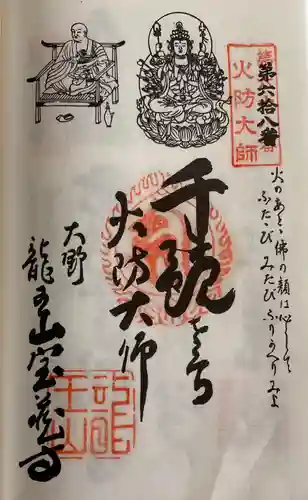 第六拾八番
火防大師
火のあとゝ佛の顔は心して
ふたゝび みたび ふりかへりみよ
千観世音
火防大師
大野
龍王山宝蔵寺